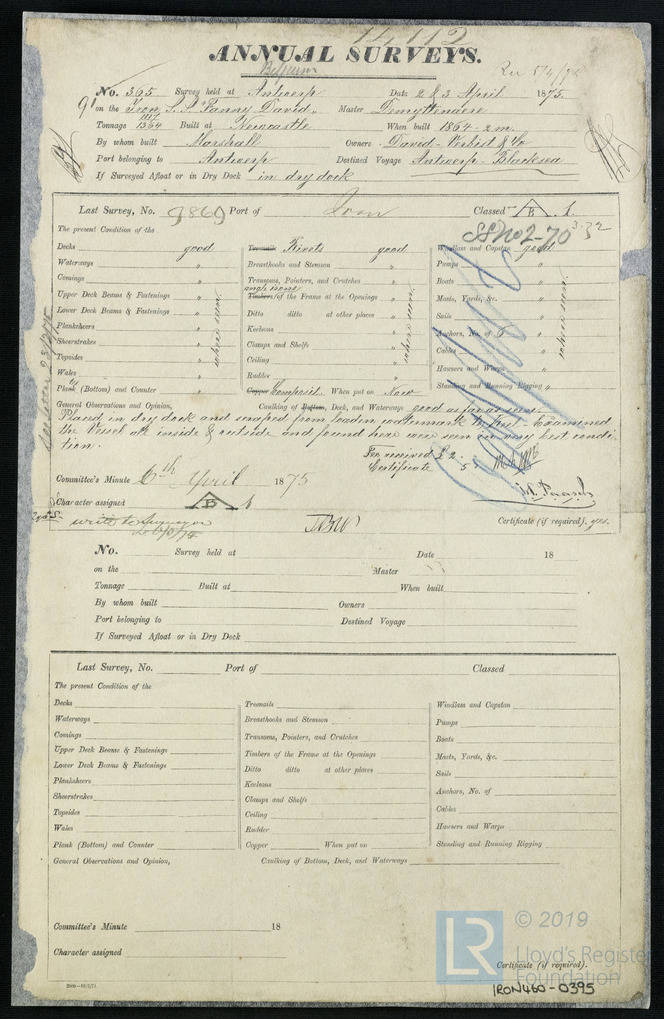 14,112
ANNUAL SURVEYS.
Belgium
No. 365 Survey held at Antwerp Date 2 & 3 April 1875.
on the Iron S.S. "Fanny David" Master Demyttenaere
1117
Tonnage 1364 Built at Newcastle When built 1864-2m.
By whom built Marshall Owners David-Verbist & Co
Port belonging to Antwerp Destined Voyage Antwerp-Blacksea
If Surveyed Afloat or in Dry Dock in dry dock
Last Survey, No. 9869 Port of Lon Classed B 1.
SSNo2-70
The present Condition of the
Decks good
Waterways "
Comings "
Upper Deck Beams & Fastenings "
Lower Deck Beams & Fastenings "
Planksheers "
Sheerstrakes "
Topsides "
Wales "
Plank (Bottom) and Counter "
where seen
Treenails Rivets good
Breasthooks and Stemson "
Transoms, Pointers, and Crutches "
angle irons
Timbers of the Frame at the Openings "
Ditto ditto at other places "
Keelsons "
Clamps and Shelfs "
Ceiling "
Rudder "
Copper Composit. When put on Now
where seen
Windlass and Capstan good
Pumps "
Boats "
Masts, Yards, &c. "
Sails "
Anchors, No. of 6 "
Cables "
Hawsers and Warps "
Standing and Running Rigging "
where seen
General Observations and Opinion, Caulking of Bottom, Deck, and Waterways good as far as seen.
Placed in dry dock and scraped from loaden watermark to keel. Examined
the Vessel all inside & outside and found here were seen in very best condi
tion.
Fee received £2.
Certificate 5s
Committee's Minute 6th April 1875
Character assigned B 1
write to Surveyor
Certificate (if required). yes.
No. Survey held at Date 18
on the Master
Tonnage Built at When built
By whom built Owners
Port belonging to Destined Voyage
If Surveyed Afloat or in Dry Dock
Last Survey, No. Port of Classed
The present Condition of the
Decks
Waterways
Comings
Upper Deck Beams & Fastenings
Lower Deck Beams & Fastenings
Planksheers
Sheerstrakes
Topsides
Wales
Plank (Bottom) and Counter
Treenails
Breasthooks and Stemson
Transoms, Pointers, and Crutches
Timbers of the Frame at the Openings
Ditto ditto at other places
Keelsons
Clamps and Shelfs
Ceiling
Rudder
Copper When put on
Windlass and Capstan
Pumps
Boats
Masts, Yards, &c.
Sails
Anchors, No. of
Cables
Hawsers and Warps
Standing and Running Rigging
General Observations and Opinion, Caulking of Bottom, Deck, and Waterways
Committee's Minute 18
Character assigned
Certificate (if required).
LR © 2019
Lloyd's Register
Foundation
IRON460-0395